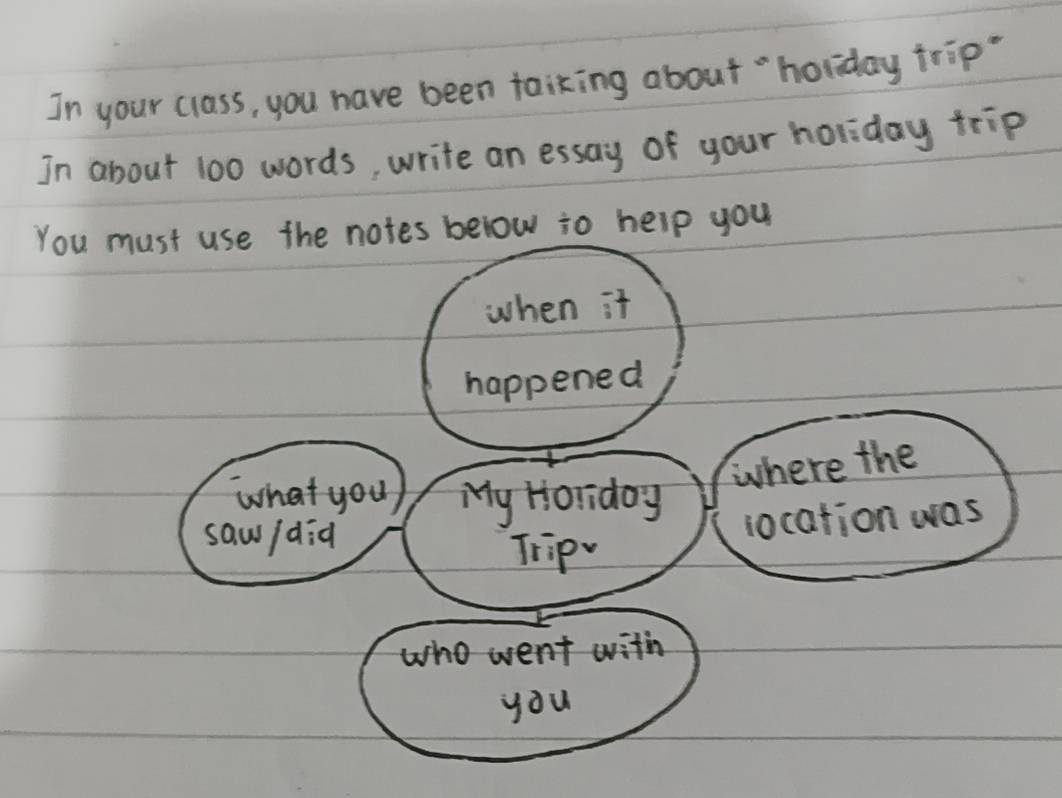 In your class, you have been talking about "holiday trip"
In about 100 words, write an essay of your holiday trip
You must use the notes below to help you
when it
happened
what you
saw/did
My Holiday
Trip
where the
location was
who went with
you